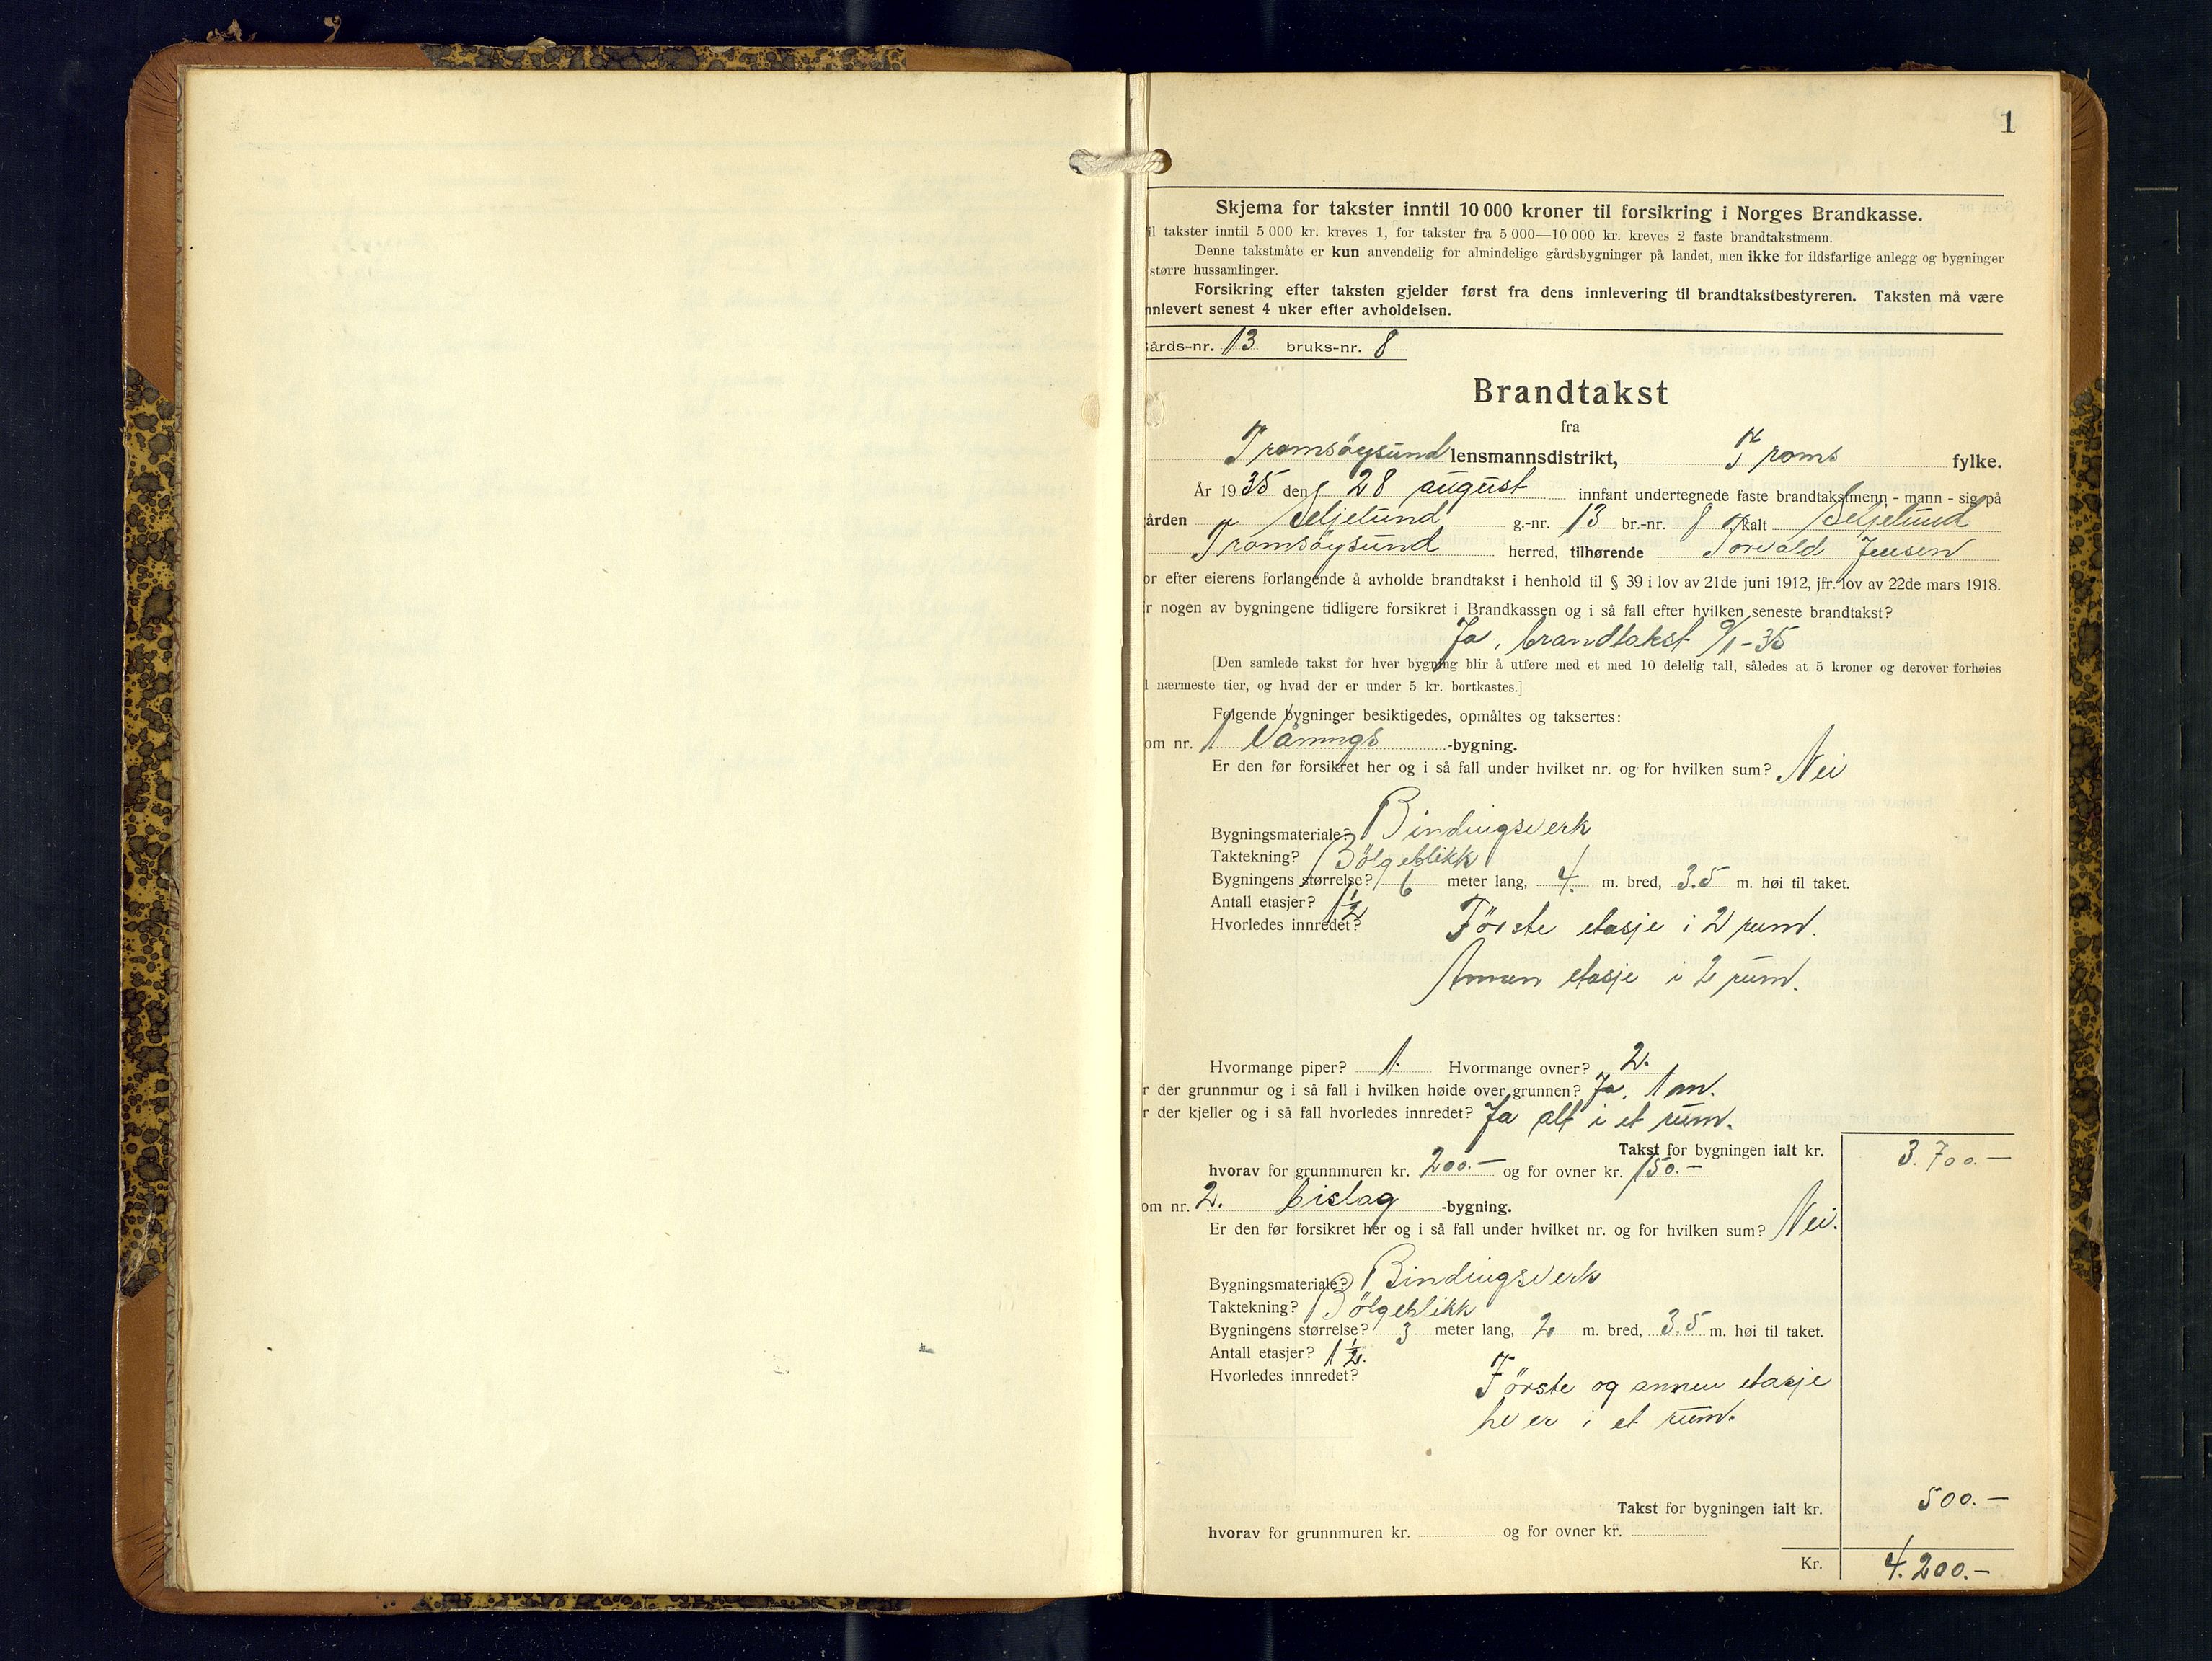 1
Skjema for takster inntil 10 000 kroner til forsikring i Norges Brandkasse.
il takster inntil 5 000 kr. kreves 1, for takster fra 5 000—10 000 kr. kreves 2 faste brandtakstmenn.
Denne takstmåte er kun anvendelig for almindelige gårdsbygninger på landet, men ikke for ildsfarlige anlegg og bygninger
større hussamlinger.
Forsikring efter taksten gjelder først fra dens innlevering til brandtakstbestyreren. Taksten må være
nnlevert senest 4 uker efter avholdelsen.
Gårds-nr. 13 bruks-nr. 8
Brandtakst
fra
Tromsöysund lensmannsdistrikt, Troms fylke.
År 1935 den 28 august innfant undertegnede faste brandtakstmenn - mann - sig på
ården Seljelund g.-nr. 13 br.-nr. 8 kalt Seljelund
Tromsöysund herred, tilhørende Torvald Jensen
or efter eierens forlangende å avholde brandtakst i henhold til § 39 i lov av 21de juni 1912, jfr. lov av 22de mars 1918.
r nogen av bygningene tidligere forsikret i Brandkassen og i så fall efter hvilken seneste brandtakst?
Ja, brandtakst 9/1-35
[Den samlede takst for hver bygning blir å utføre med et med 10 delelig tall, således at 5 kroner og derover forhøies
l nærmeste tier, og hvad der er under 5 kr. bortkastes.]
Følgende bygninger besiktigedes, opmåltes og taksertes:
om nr. 1 Vånings -bygning.
Er den før forsikret her og i så fall under hvilket nr. og for hvilken sum? Nei
Bygningsmateriale? Bindingsverk
Taktekning? Bölgeblikk
Bygningens størrelse? 6 meter lang, 4. m. bred, 3.5 m. høi til taket.
Antall etasjer? 1½
Hvorledes innredet? Förste etasje i 2 rum.
Annen etasje i 2 rum.
Hvormange piper? 1. Hvormange ovner? 2.
r der grunnmur og i så fall i hvilken høide over grunnen? Ja, 1 m.
r der kjeller og i så fall hvorledes innredet? Ja alt i et rum.
Takst for bygningen ialt kr. 3.700.-
hvorav for grunnmuren kr. 200.- og for ovner kr. 150.-
om nr. 2. bislag -bygning.
Er den før forsikret her og i så fall under hvilket nr. og for hvilken sum? Nei.
Bygningsmateriale? Bindingsverk
Taktekning? Bölgeblikk
Bygningens størrelse? 3 meter lang, 2. m. bred, 3.5 m. høi til taket.
Antall etasjer? 1½.
Hvorledes innredet? Förste og annen etasje
hver i et rum.
Takst for bygningen ialt kr. 500.-
hvorav for grunnmuren kr. og for ovner kr.
Kr. 4.200.-